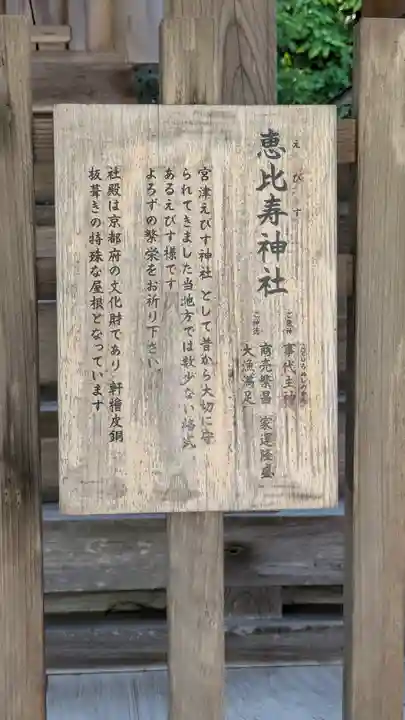 えびす
恵比寿神社
ご祭神 事代主神
ご神徳 商売繁昌 家運隆盛
大漁満足
宮津えびす神社 として昔から大切に守
られてきました当地方では数少ない格式
あるえびす様です
よろずの繁栄をお祈り下さい
社殿は京都府の文化財であり 軒檜皮銅
板葺きの特殊な屋根となっています